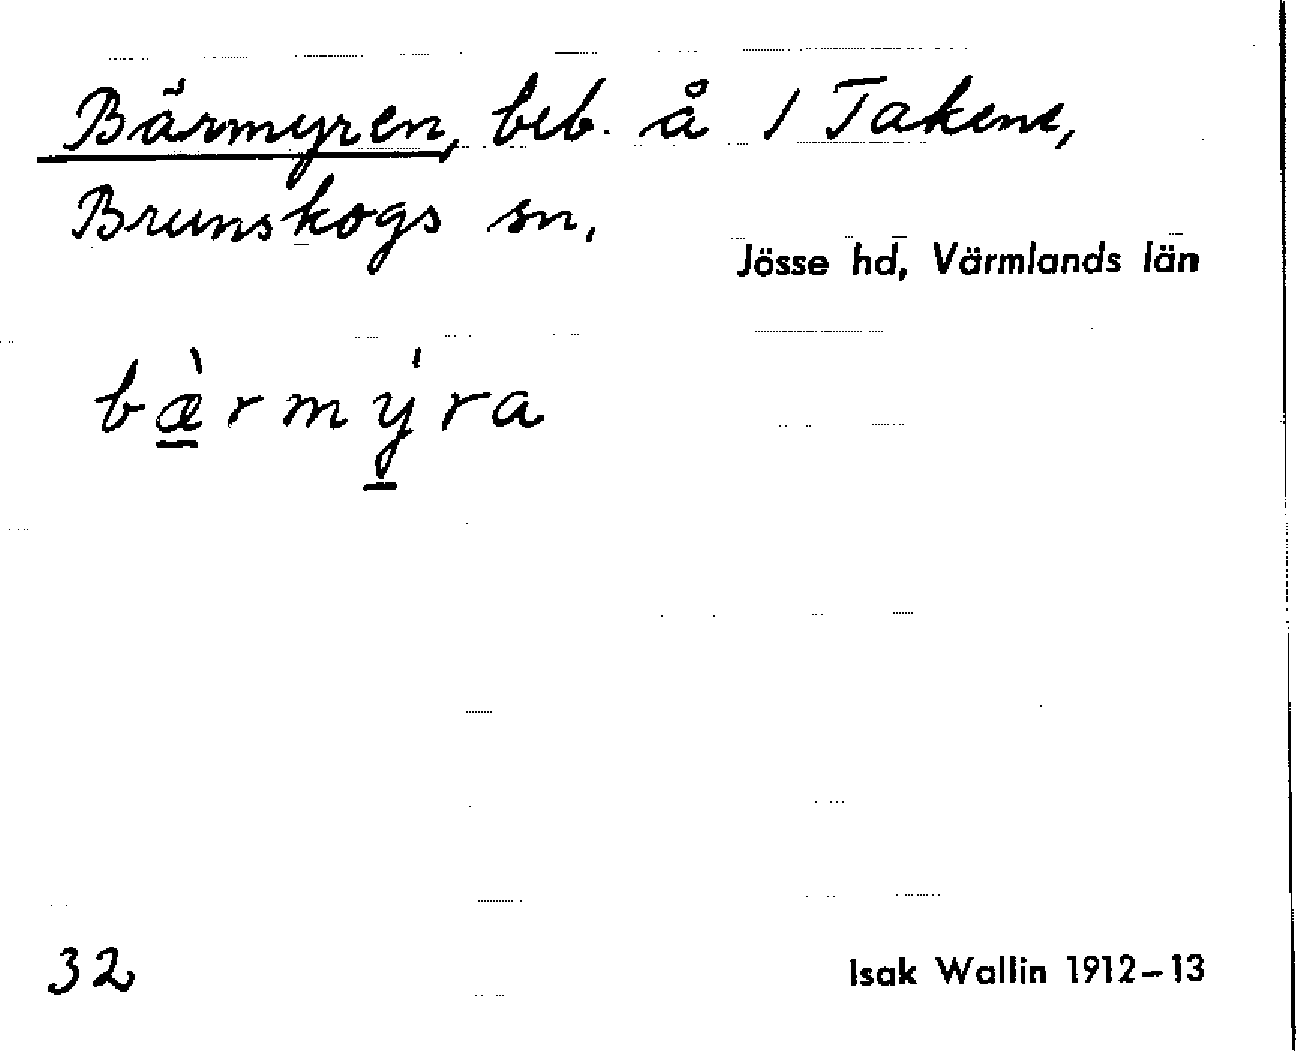 Bärmyren, beb. å 1 Takene,
Brunskogs sn,
Jösse hd, Värmlands län
bæ̱̀rmý̱ra
32
Isak Wallin 1912–13